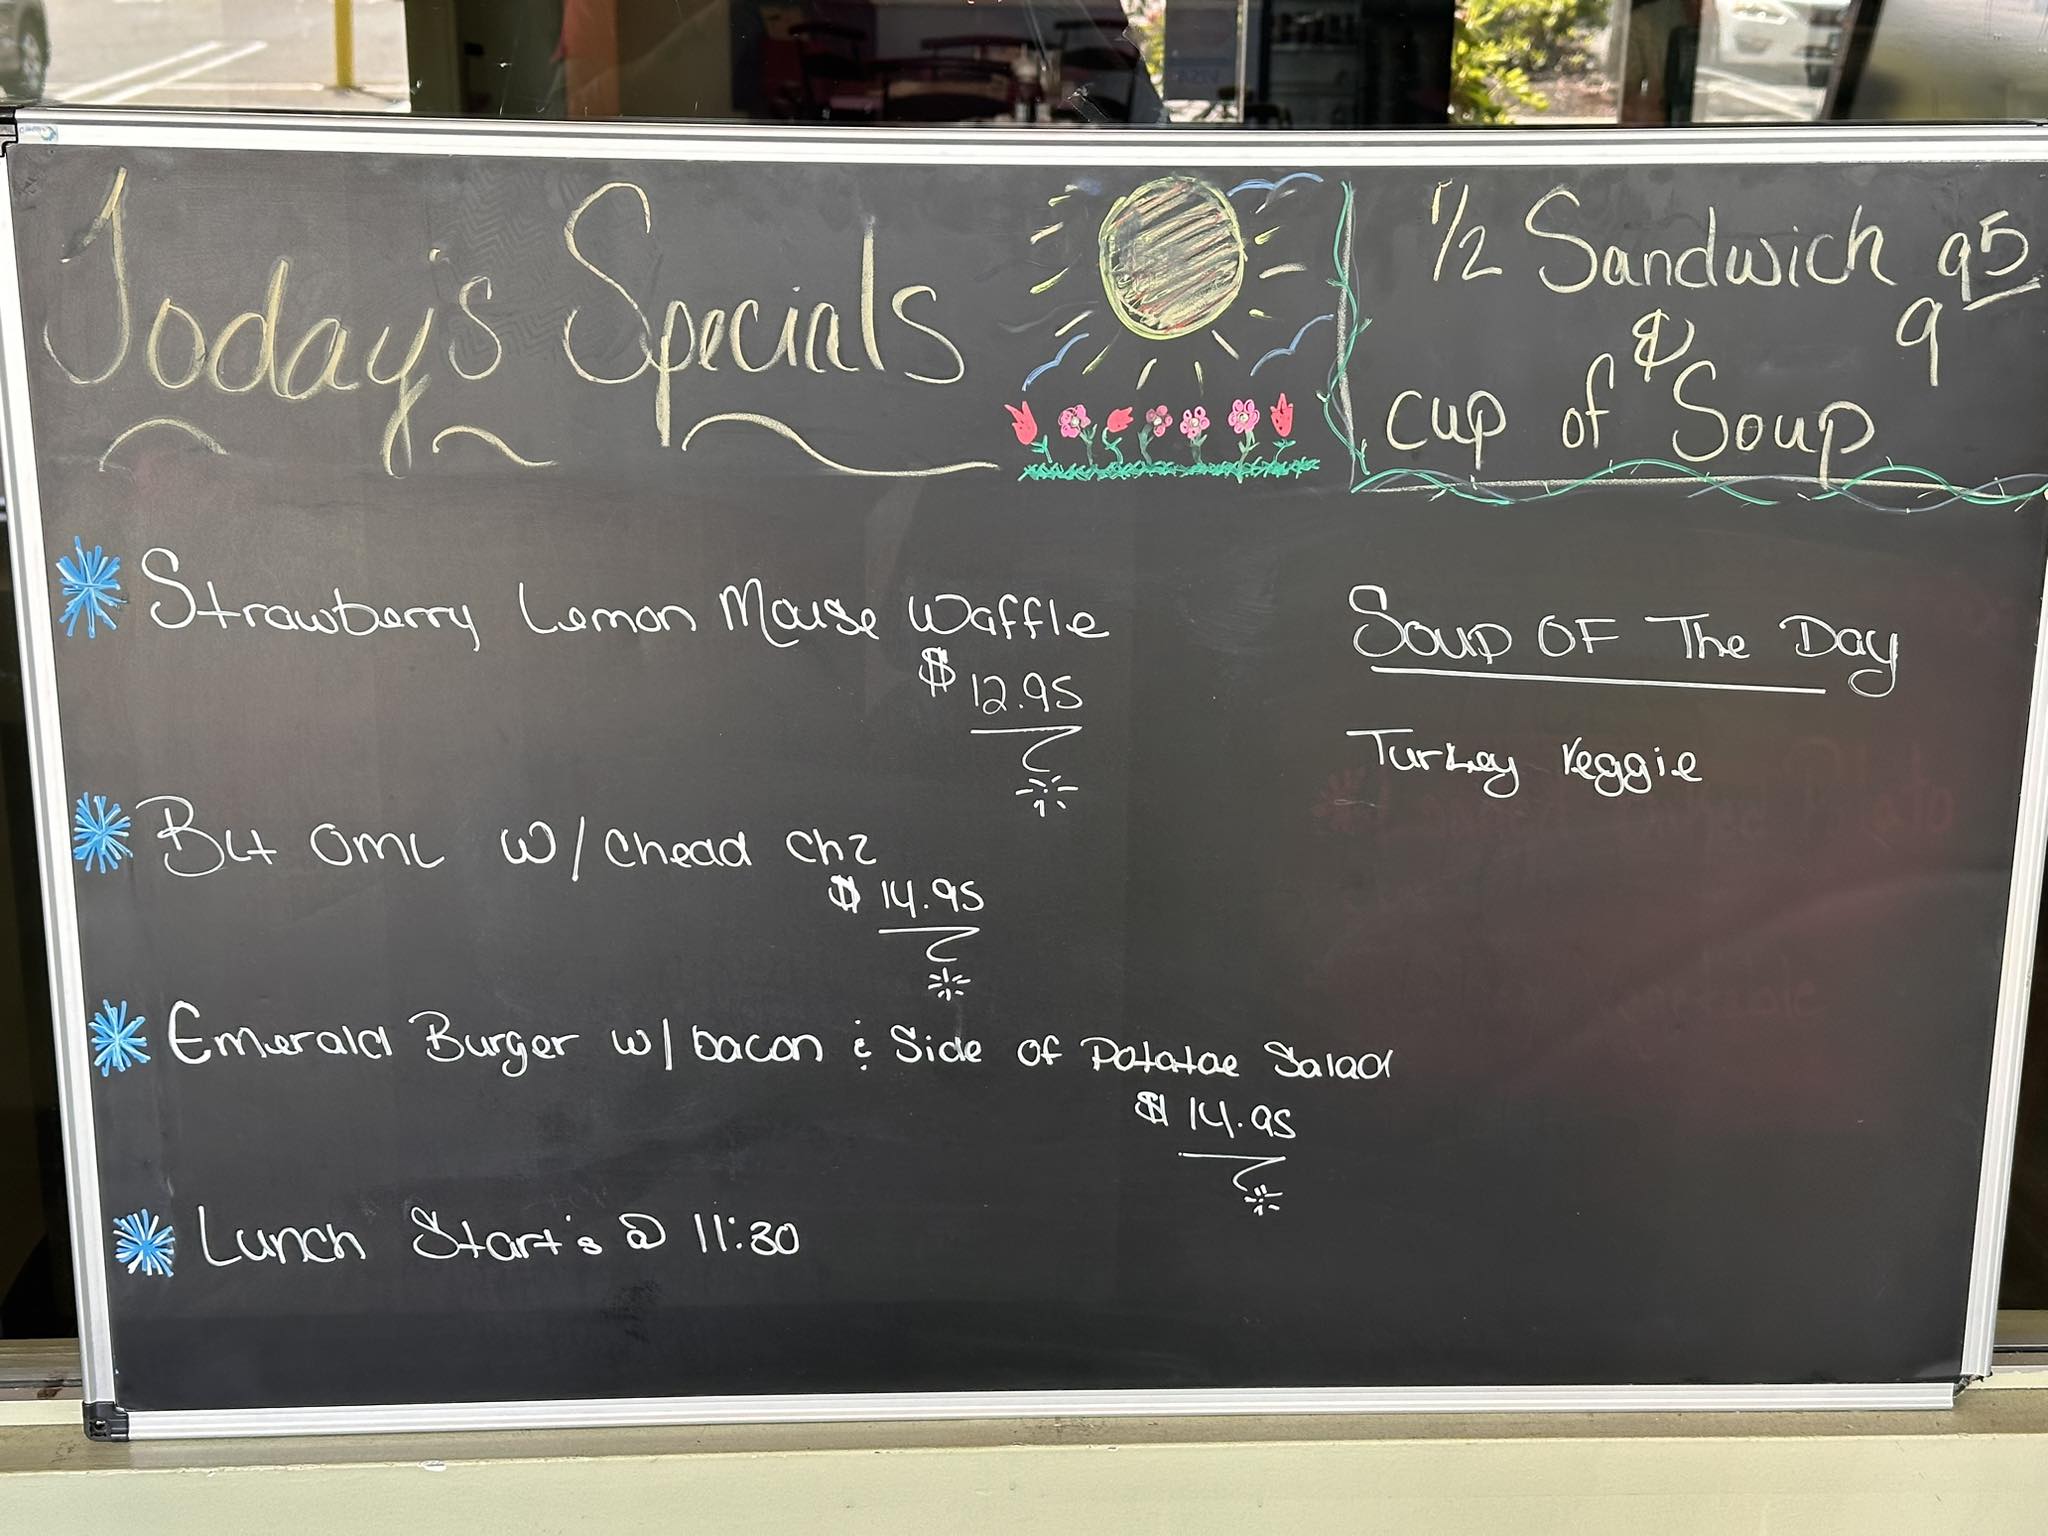 Today's Specials
1/2 Sandwich 9 95
&
cup of Soup
Strawberry Lemon Mouse Waffle
$12.95
Blt OML w/ Chead chz
$14.95
Emerald Burger w/ bacon & Side of Potatoe Salad
$14.95
Lunch Start's @ 11:30
Soup OF The Day
Turkey Veggie